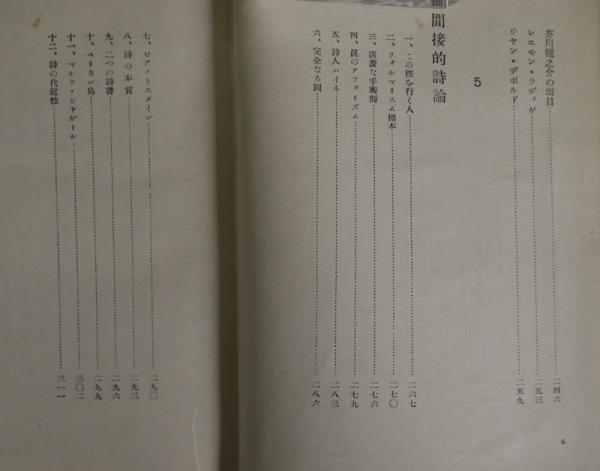 芥川龍之介の面目……二四六
レエモン・ラディゲ……二五三
ジャン・デボルド……二五九
5
間接的詩論
一、この標を行く人……二六七
二、フォルマリスム標本……二七〇
三、清潔な手術師……二七六
四、眞のアフォリズム……二七九
五、詩人ハイネ……二八三
六、完全なる圓……二八六
6
七、ピアノとスメイジ……二九〇
八、詩の本質……二九三
九、二つの詩書……二九六
十、ペリカン島……二九九
十一、マルク・シャガール……三〇二
十二、詩の代近性……三一一